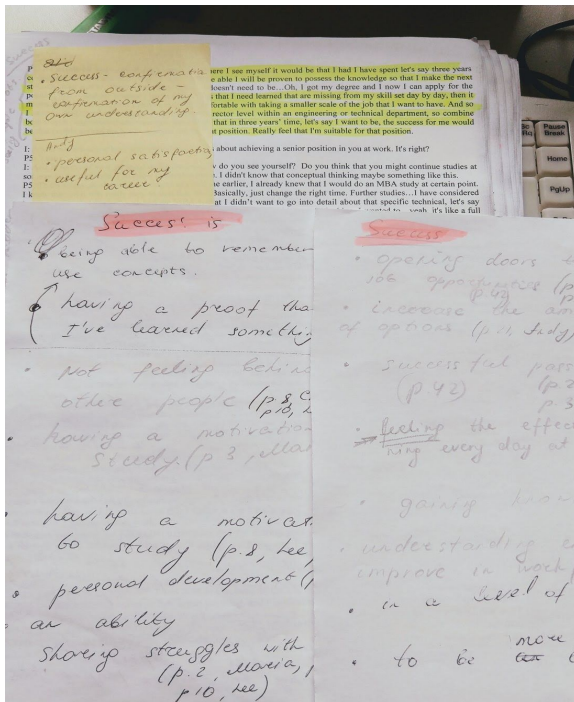 • Success – confirmation
from outside –
confirmation of my
own understanding.
• personal satisfaction
• useful for my
career
here I see myself it would be that I had I have spent let's say three years
e able I will be proven to possess the knowledge so that I make the next
doesn't need to be…Oh, I got my degree and I now I can apply for the
that I need learned that are missing from my skill set day by day, then it
fortable with taking a smaller scale of the job that I want to have. And so
rector level within an engineering or technical department, so combine
that in three years' time, let's say I want to be, the success for me would
t position. Really feel that I'm suitable for that position.
I: about achieving a senior position in you at work. It's right?
w do you see yourself? Do you think that you might continue studies at
. I didn't know that conceptual thinking maybe something like this.
e earlier, I already knew that I would do an MBA study at certain point.
Basically, just change the right time. Further studies… I have considered
at I didn't want to go into detail about that specific technical, let's say
yeah, it's like a full
Pause
Break
Home
PgUp
Success is
being able to remember
use concepts.
having a proof tha
I've learned somethin
• not feeling behind
other people (p.8,
p10,
• having a motivation
study. (p 3,
having a motivat
to study (p.8, Lee,
• personal development (
• an ability
sharing struggles with
(p.2, Maria,
p10, Lee)
Success
• opening doors t
job opportunities (p
p.42
• increase the am
of options (p.11, Indy,
• successful pass
(p.42) (p.2
p.3
• feeling the effec
ning every day at
• gaining know
• understanding
improve in work
• in a level of
• to be more